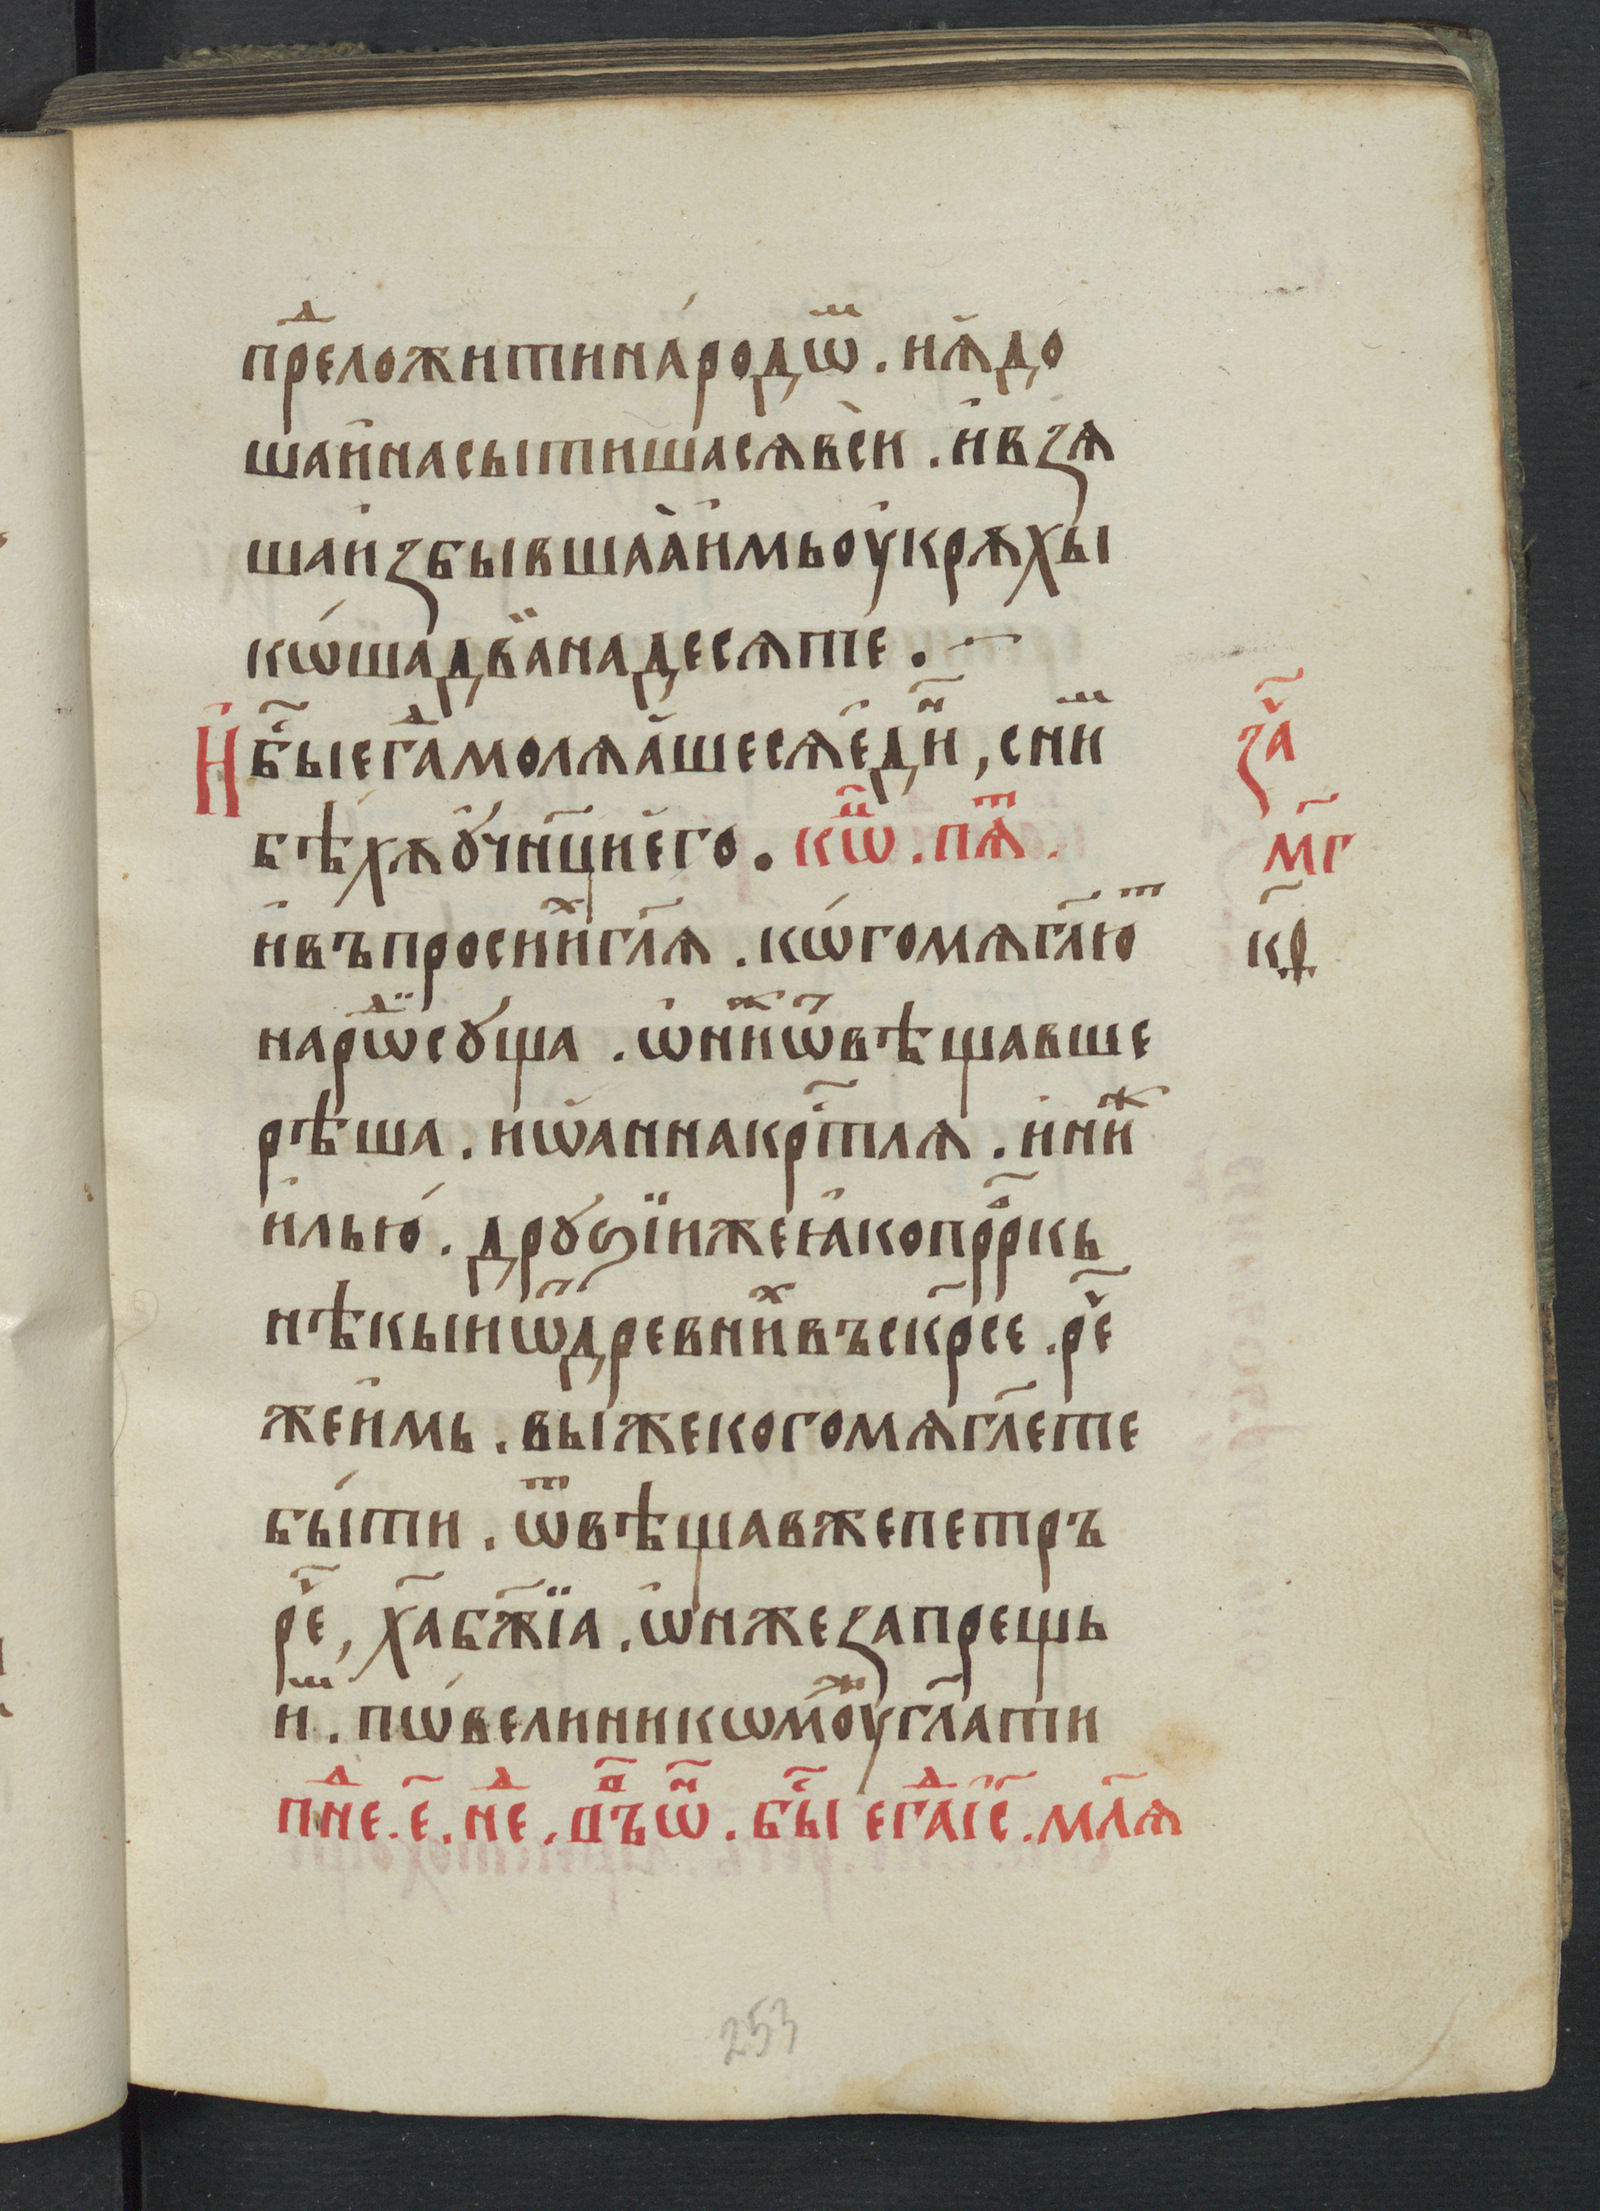 прⷣеложитинаро́дѡⷨ . и҆ꙗ҆до
шаи҆насытишасѧвⷭ҇и . и҆взѧ
шаи҆збывшаѧ҆и҆мьоу҆крꙋхы
кѡ́шадвӓнадесѧте . ~
И҆бы́сⷭ҇егⷣамолѧ́щесѧе҆ди҃ⷩ , сниⷨ
бѣ́хѧꙋ҆чнц҃ие҆го . кѡⷩ҇ . пѧⷦ .
и҆въпросиⷯи҆гл҃ѧ . кѡ́гомѧгл҃юⷮ
нарѡⷣсꙋща . ѡ҆ниⷤѿвѣщавше
рѣша . иѡ҆аннакрⷭ҇тлѧ . и҆ниⷤ
и҆лью́ . дрꙋѕїижеꙗ҆копрⷪ҇ркь
нѣкыиѿдревниⷯвъскрⷭ҇е . рⷱ҇е
жеи҆мь . выжекогомѧгл҃ете
бы́ти . ѿвѣщавжепетръ
рⷱ҇е , хⷭ҇абж҃їа . ѡ҆нжезапрещь
иⷨ . пѡ́велиникѡмⷤоугл҃ати
пнⷣе . е҃ . неⷣ . дп҃ъѡⷩ . бы́ⷭ҇ егⷣаі҆с҃ . мл҃ѧ
заⷱ҇
м҃г
к҃ѳ
253